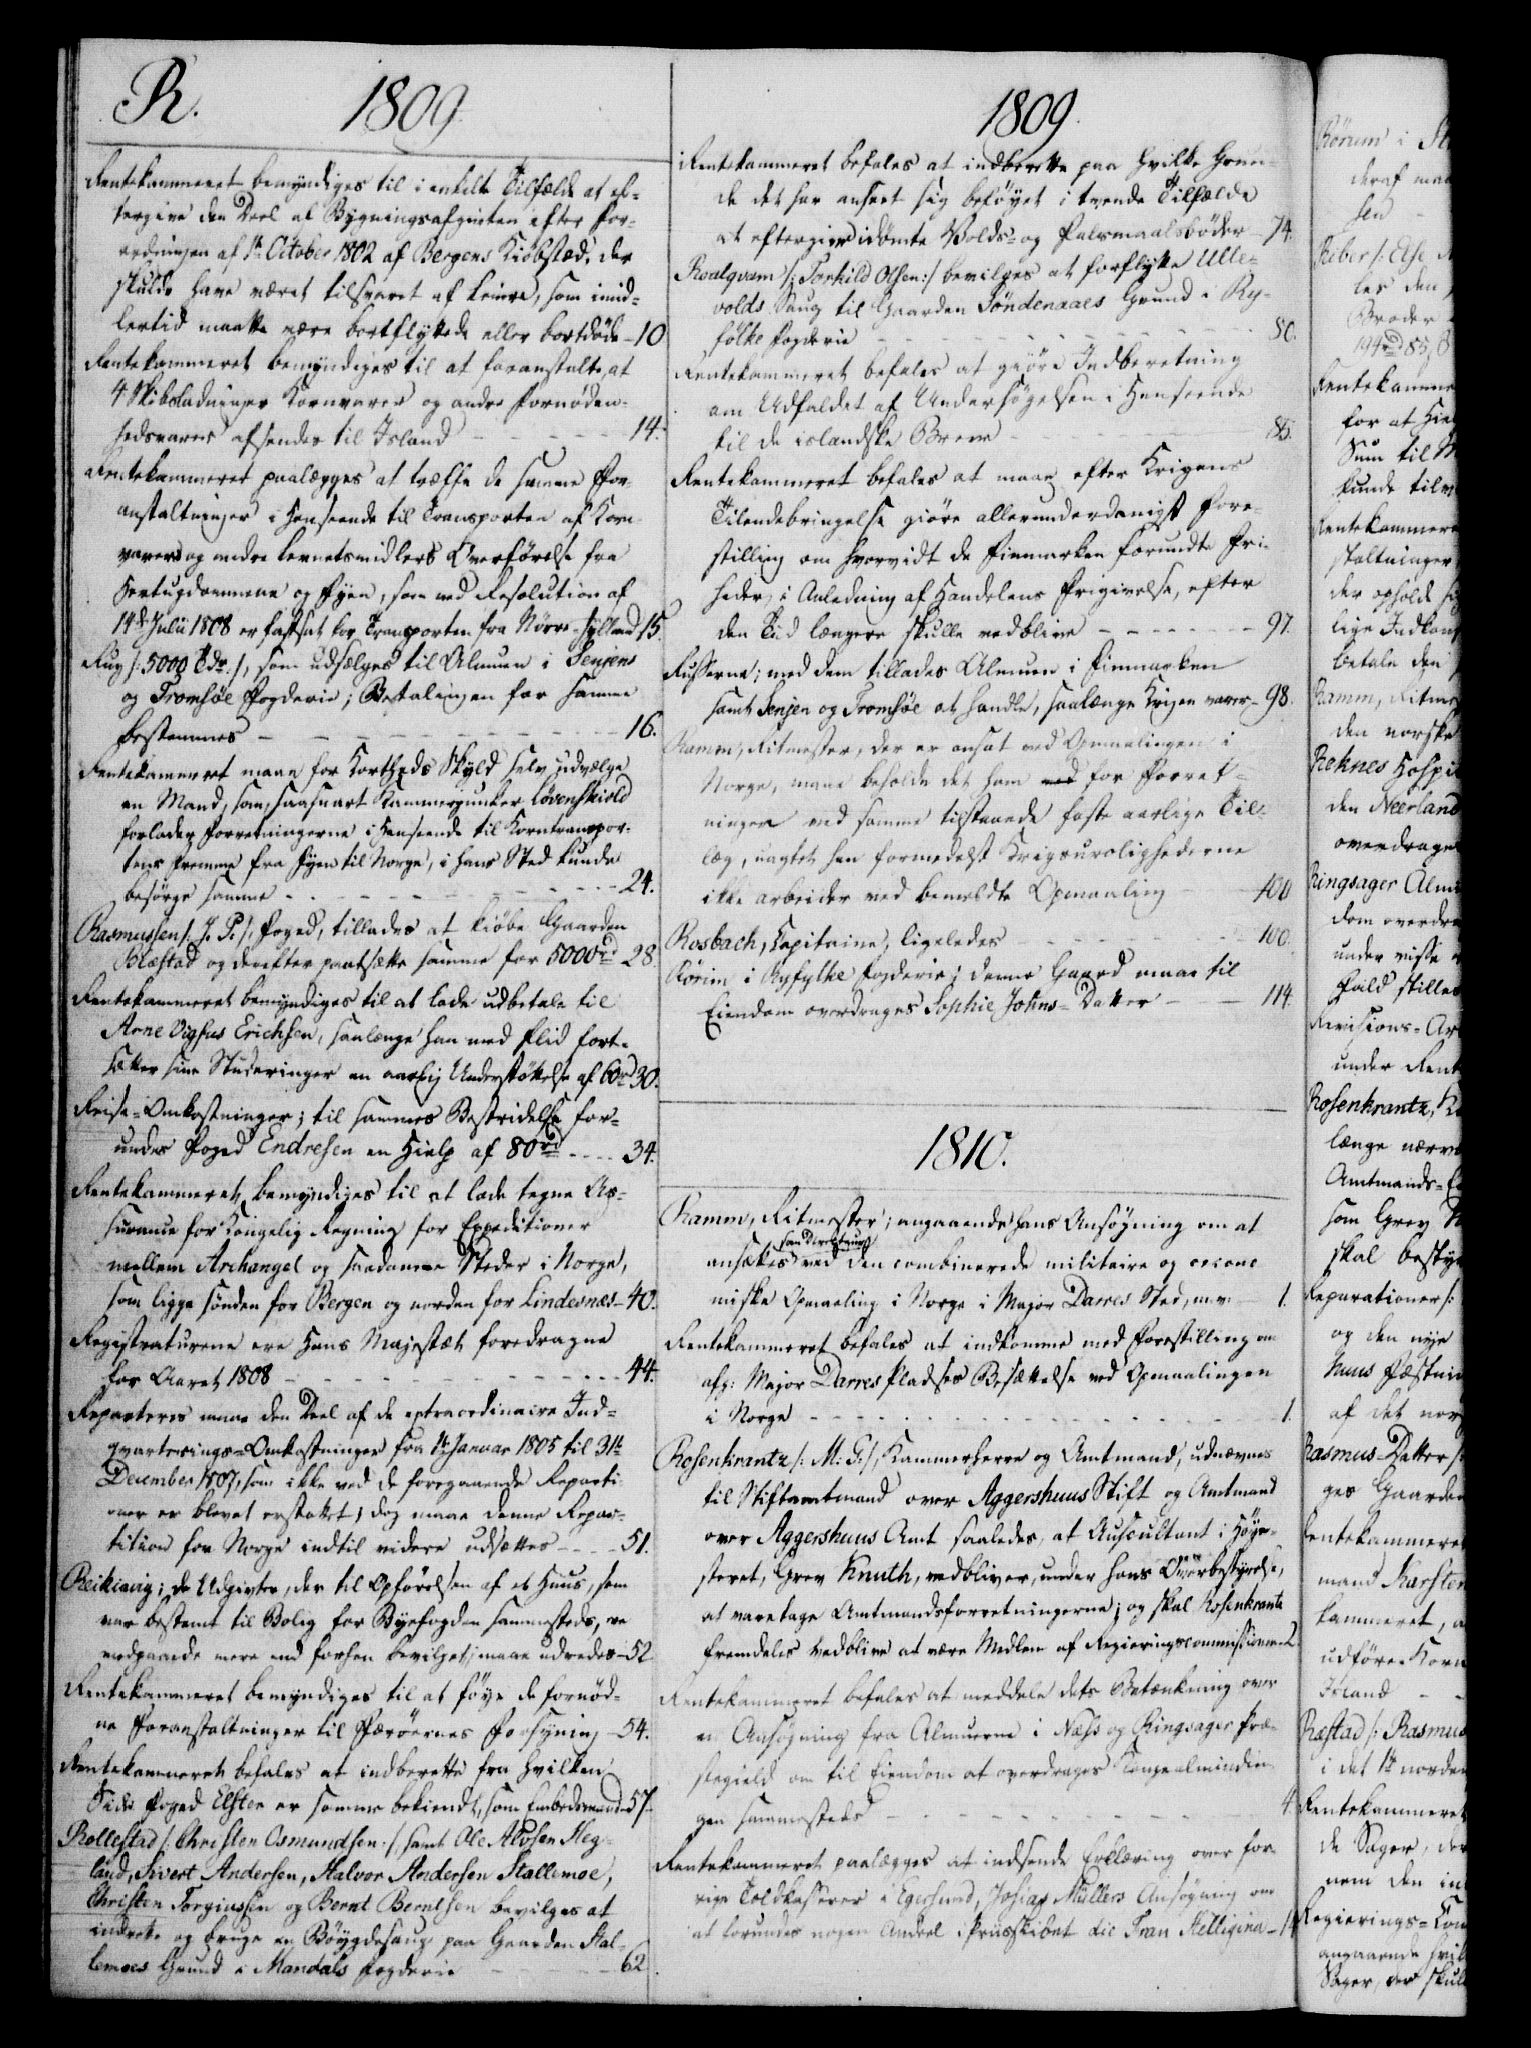 R. 1809
Rentekammeret bemyndiges til i enkelte Tilfælde at ef-
tergive den Deel af Bygningsafgivten efter For-
ordningen af 1te October 1802 af Bergens Kiöbstæd, der
skulde have været tilsvaret af Leiere, som imid-
lertid maatte være bortflyttede eller bortdöde - 10
Rentekammeret bemyndiges til at foranstalte, at
4 Skibsladninger Kornvarer og andre Fornöden-
hedsvarer afsendes til Island - - - - - - 14.
Rentekammeret paalægges at træffe de samme For-
anstaltninger i Henseende til Transporten af Korn-
varer og andre Levnetsmidlers Overförelse fra
Hertugdömmene og Fyen, som ved Resolution af
14de Julii 1808 er fastsat for Transporten fra Nörre-Jylland 15.
Rug /: 5000 Tdr. :/, som udsælges til Almuen i Senjens
og Tromsöe Fogderie; Betalingen for samme
bestemmes - - - - - - - - - - 16.
Rentekammeret maae for Kortheds Skyld selv udvælge
en Mand, som, saasnart Kammerjunker Lövenskiold
forlader Forretningerne i Henseende til Korntranspor-
tens Fremme fra Fyen til Norge, i hans Sted kunde
besörge samme - - - - - - - - - 24.
Rasmussen /: J. P. :/ Foged, tillades at kiöbe Gaarden
Blæstad og derefter pantsætte samme for 5000 rd 28.
Rentekammeret bemyndiges til at lade udbetale til
Arne Vigfus Erichsen, saalænge han med Flid fort-
sætter sine Studeringer en aarlig Understöttelse af 60 rd 30.
Reise-Omkostninger; til sammes Bestridelse for-
undes Foged Endresen en Hielp af 80 rd - - - - 34.
Rentekammeret bemyndiges til at lade tegne As-
surance for Kongelig Regning for Expeditioner
mellem Archangel og saadanne Steder i Norge,
som ligge sönden for Bergen og norden for Lindesnæs - 40.
Registraturene ere Hans Majestæt foredragne
for Aaret 1808 - - - - - - - - - - 44.
Reparteres maae den Deel af de extraordinaire Ind-
qvarterings-Omkostninger fra 1te Januar 1805 til 31te
December 1807, som ikke ved de foregaaende Reparti-
oner er blevet erstattet; dog maae denne Repar-
tition for Norge indtil videre udsættes - - - - 51.
Reikiavig; de Udgivter, der til Opförelsen af et Huus, som
var bestemt til Bolig for Byefogden sammesteds, ere
medgaaede mere end forhen bevilget, maae udredes - 52
Rentekammeret bemyndiges til at föye de fornöd-
ne Foranstaltninger til Færöernes Forsyning - 54.
Rentekammeret befales at indberette fra hvilken
Side Foged Elster er samme bekiendt, som Embedsmand - 57.
Rollestad /: Christen Osmundsen :/ samt Ole Alvsen Heg-
land, Sivert Andersen, Halvor Andersen Stallemoe,
Christen Torgiussen og Bernt Berntsen bevilges at
indrette og bruge en Böygdesaug paa Gaarden Stal-
lemoes Grund i Mandals Fogderie - - - - 62
1809.
Rentekammeret befales at indberette paa hvilke Grun-
de det har anseet sig beföyet i tvende Tilfælde
at eftergive idömte Volds- og Falsmaalsböder - 74.
Roalqvam /: Torkild Olsen :/ bevilges at forflytte Ulle-
volds Saug til Gaarden Söndenaaes Grund i Ry-
fölke Fogderie - - - - - - - - - 80.
Rentekammeret befales at giöre Indberetning
om Udfaldet af Undersögelsen i Henseende
til de islandske Breve - - - - - - - 85.
Rentekammeret befales at maae efter Krigens
Tilendebringelse giöre allerunderdanigst Fore-
stilling om hvorvidt de Finmarken forundte Fri-
heder, i Anledning af Handelens Frigivelse, efter
den Tid længere skulle vedblive - - - - - - 97.
Russerne; med dem tillades Almuen i Finmarken
samt Senjen og Tromsöe at handle, saalænge Krigen varer - 98.
Ramm, Ritmester, der er ansat ved Opmaalingen i
Norge, maae beholde det ham for Forret-
ninger ved samme tilstaaede faste aarlige Til-
læg, uagtet han formedelst Krigsurolighederne
ikke arbeider ved bemeldte Opmaaling - - - 100
Rosbach, Capitaine, ligeledes - - - - - - 100.
Rörim i Ryfylke Fogderie; denne Gaard maae til
Eiendom overdrages Sophie Johns-Datter - - - 114.
1810.
Ramm, Ritmester; angaaende hans Ansögning om at
ansættes som Directeur ved den combinerede militaire og oecono-
miske Opmaaling i Norge i Major Darres Sted, m.v. - 1.
Rentekammeret befales at indkomme med Forestilling om
afg: Major Darres Pladses Besættelse ved Opmaalingen
i Norge - - - - - - - - - - - - 1.
Rosenkrantz /: M. G. :/, Kammerherre og Amtmand, udnævnes
til Stiftamtmand over Aggershuus Stift og Amtmand
over Aggershuus Amt saaledes, at Auscultant i Höye-
steret, Grev Knuth, vedbliver, under hans Overbestyrelse,
at varetage Amtmandsforretningerne; og skal Rosenkrantz
fremdeles vedblive at være Medlem af Regieringscommissionen - 2
Rentekammeret befales at meddele dets Betænkning over
en Ansögning fra Almuerne i Næss og Ringsager Præ-
stegield om til Eiendom at overdrages Kongealmindin-
gen sammesteds - - - - - - - - - 4
Rentekammeret paalægges at indsende Erklæring over for-
rige Toldkasserer i Egersund, Josias Müllers Ansögning om
at forundes nogen Andeel i Priisskibet die Frau Helligina - 14
Rörum i
deraf maa
sen
Riber /: Else
les den
Broder
194 rd 85 ß
Rentekamme
for at Hie
Sum til
kunde tilv
Rentekammere
staltninger
der ophold
lige Indkom
betale den
Ramm, Ritme
den norske
Reknes Hospi
den Neerland
overdrage
Ringsager Almu
dom overdra
under visse
Fald stilles
Revisions-
under Rent
Rosenkrantz,
længe nærv
Amtmands-
som Grev
skal besty
Reparationer /:
og den nye
huus Fæstni
af det nor
Rasmus-Datter /:
ges Gaarden
Rentekammeret
mand Karsten
kammeret,
udförer Korn
Island - -
Ræstad /: Rasmus
i det 1te norden
Rentekammeret
de Sager, der
nem den in
Regierings-Com
angaaende hvil
Sager, der skul